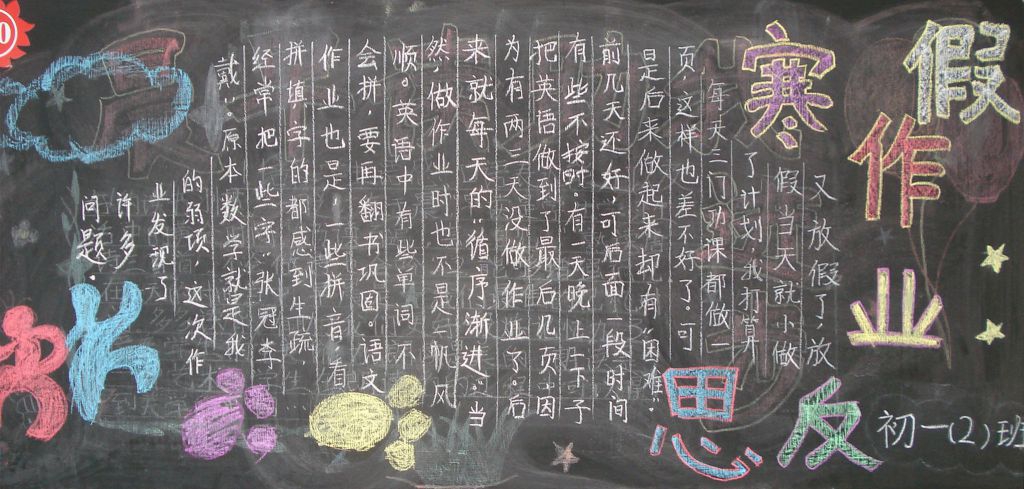 寒假
作
业
反思
初一(2)班
又放假了,放
假当天就小做
了计划,我打算
每天三门功课都做一
页,这样也差不好了。可
是后来做起来却有“困难”:
前几天还好,可后面一段时间
有些不按时,有一天晚上一下子
把英语做到了最后几页,因
为有两三天没做作业了。后
来就每天的“循序渐进”。当
然,做作业时也不是一帆风
顺。英语中有些单词不
会拼,要再翻书巩固。语文
作业也是,一些拼音,看
拼填字的都感到生疏
经常把一些字“张冠李
戴”。原本数学就是我
的弱项 这次作
业发现了
许多
问题.